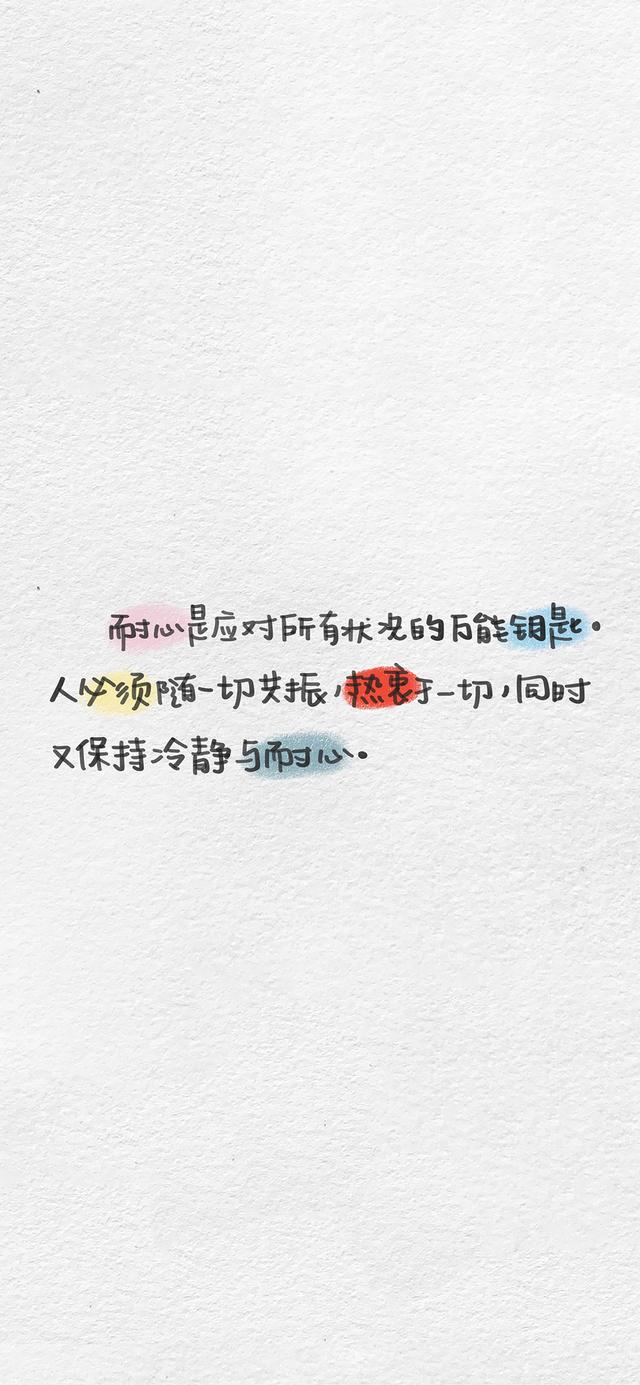 耐心是应对所有状况的万能钥匙。
人必须随一切共振，热衷于一切，同时
又保持冷静与耐心。